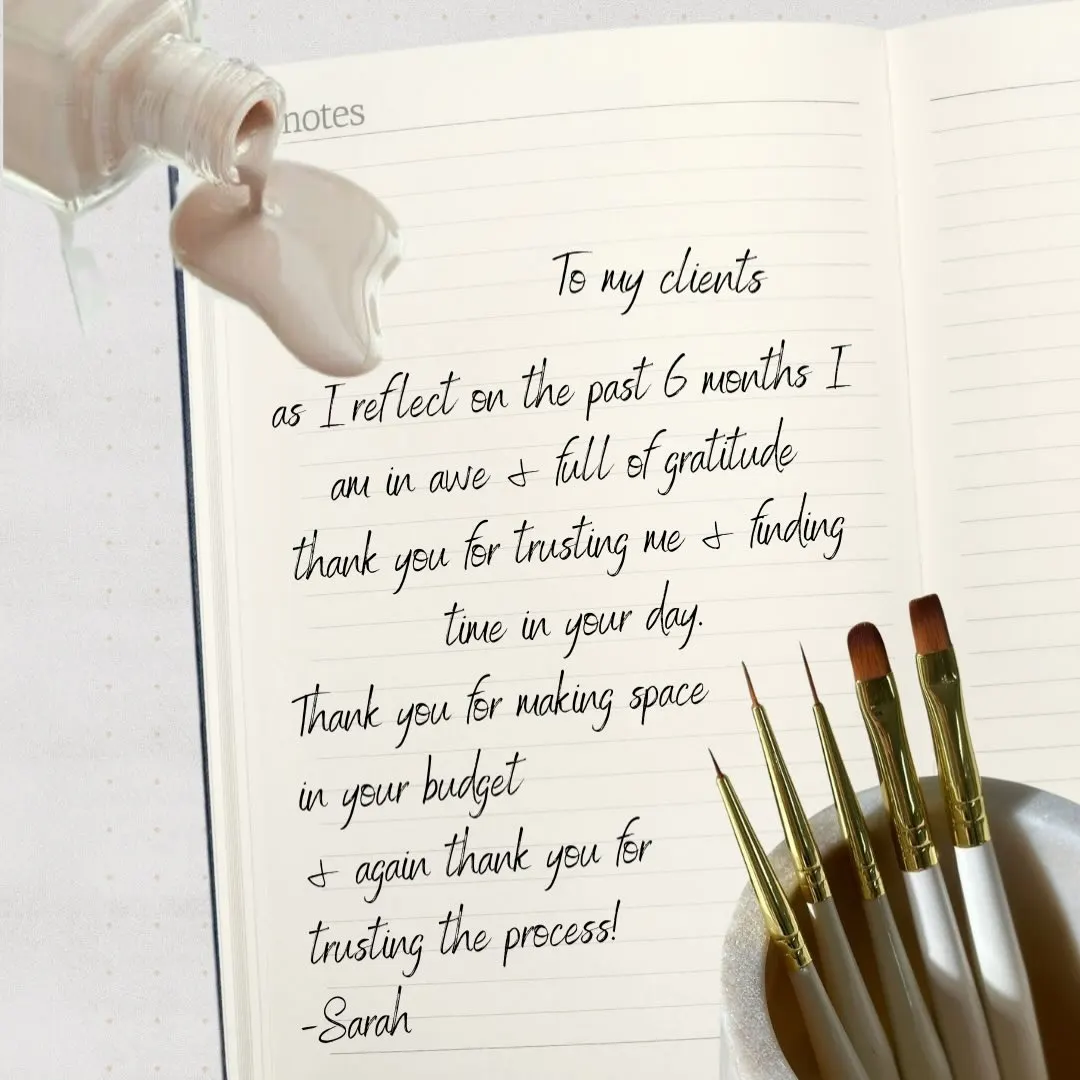 notes
To my clients
as I reflect on the past 6 months I
am in awe & full of gratitude
thank you for trusting me & finding
time in your day.
Thank you for making space
in your budget
& again thank you for
trusting the process!
-Sarah